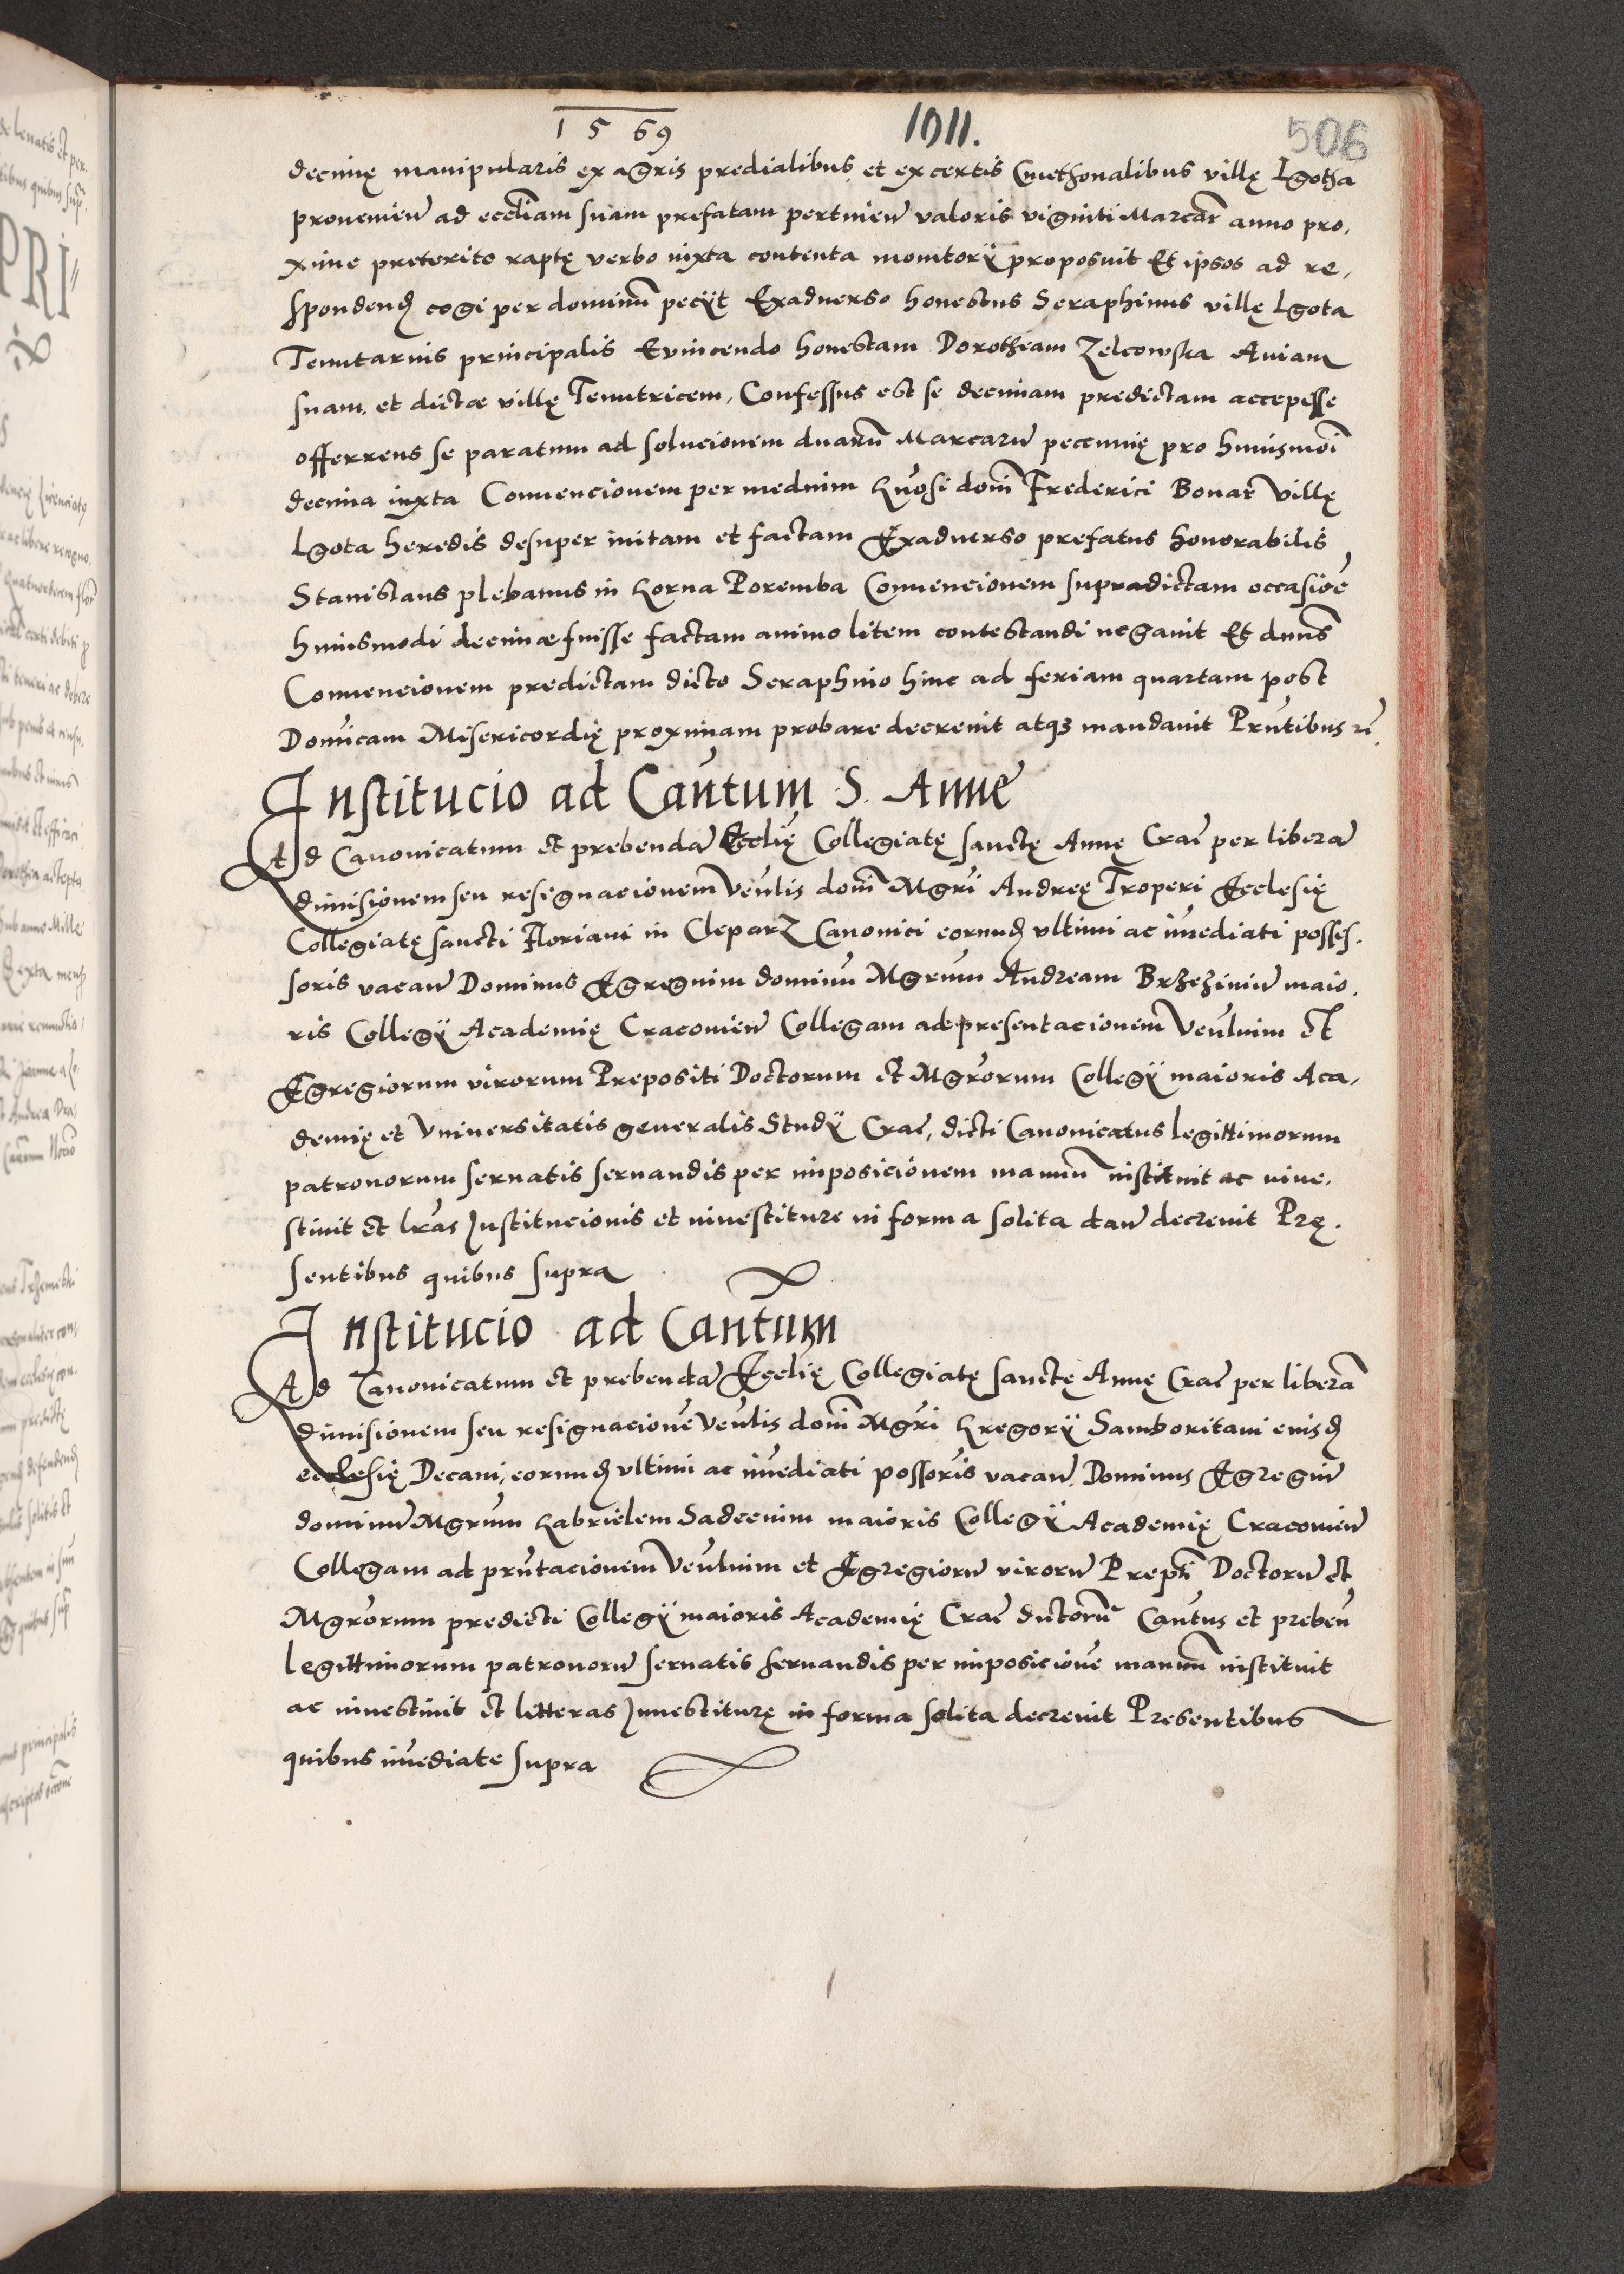 1569
1011.
506
decimę manipularis ex agris predialibus et ex certis Cmethonalibus villę Lgotha
provenieñ ad eccl̃iam suam prefatam pertinen̄ valoris viginti Marcar̃ anno pro,
xime preterito raptę verbo iuxta contenta monitorÿ proposuit Et ipsos ad re,
spondend̨ cogi per dominũ pecÿt Exaduerso honestus Seraphinus villę Lgota
Tenutarius principalis Evincendo honestam Dorotheam Zelcowska Auiam
suam et dictæ villę Tenutricem, Confessus est se decimam predictam accepisse
offerrens se paratum ad solucionem duarũ Marcarũ pecunię pro huiusmõi
decima iuxta Convencionem per medium Gñosi domĩ Frederici Bonar villę
Lgota heredis desuper initam et factam Exaduerso prefatus honorabilis
Stanislaus plebanus in Gorna Poremba Convencionem supradictam occasiõe
huiusmodi decimæ fuisse factam animo litem contestandi negauit Et dnũs
Convencionem predictam dicto Seraphino hinc ad feriam quartam post
Domĩcam Misericordię proximam probare decreuit atq3 mandauit Pñtibus ũ
Institucio ad Cañtum S. Annę
Ad Canonicatum et prebendã Ecclię Collegiatę sanctę Annę Crac̃ per liberã
dimisionem seu resignacionem Veñlis domĩ Mgrĩ Andreę Troperi Ecclesię
Collegiatę sancti Floriani in Cleparz Canonici eorund̨ vltimi ac im̃ediati posses,
soris vacañ Dominus Egregium dominũ Mgrũm Andream Brzezinũ maio,
ris Collegÿ Academię Cracouieñ Collegam ad presentacionem Veñluim et
Egregiorum virorum Prepositi Doctorum et Mgrõrum Collegÿ maioris Aca,
demię et Vniuersitatis generalis Studÿ Crac̃, dicti Canonicatus legittimorum
patronorum seruatis seruandis per imposicionem manũũ instituit ac inue,
stiuit et lrãs Institucionis et inuestiture in forma solita dañ decreuit Prę,
sentibus quibus supra
Institucio ad Cañtum
Ad Canonicatum et prebendã Ecclię Collegiatę sanctę Annę Crac̃ per liberã
dimisionem seu resignacionẽ Veñlis domĩ Mgrĩ Gregorÿ Samboritani eiusd̨
ecclesię Decani, eorund̨ vltimi ac im̃ediati possoris̃ vacañ. Dominus Egregiũ
dominũ Mgrũm Gabrielem Sadecium maioris Collegÿ Academię Cracouieñ
Collegam ad prñtacionem Veñluim et Egregiorũ virorũ Preptĩ Doctorũ et
Mgrõrum predicti Collegÿ maioris Academię Crac̃ dictorũ Cañtus et prebeñ
legittimorum patronorũ seruatis seruandis per imposicionẽ manũũ instituit
ac inuestiuit et letteras Inuestiturę in forma solita decreuit Presentibus
quibus im̃ediate supra